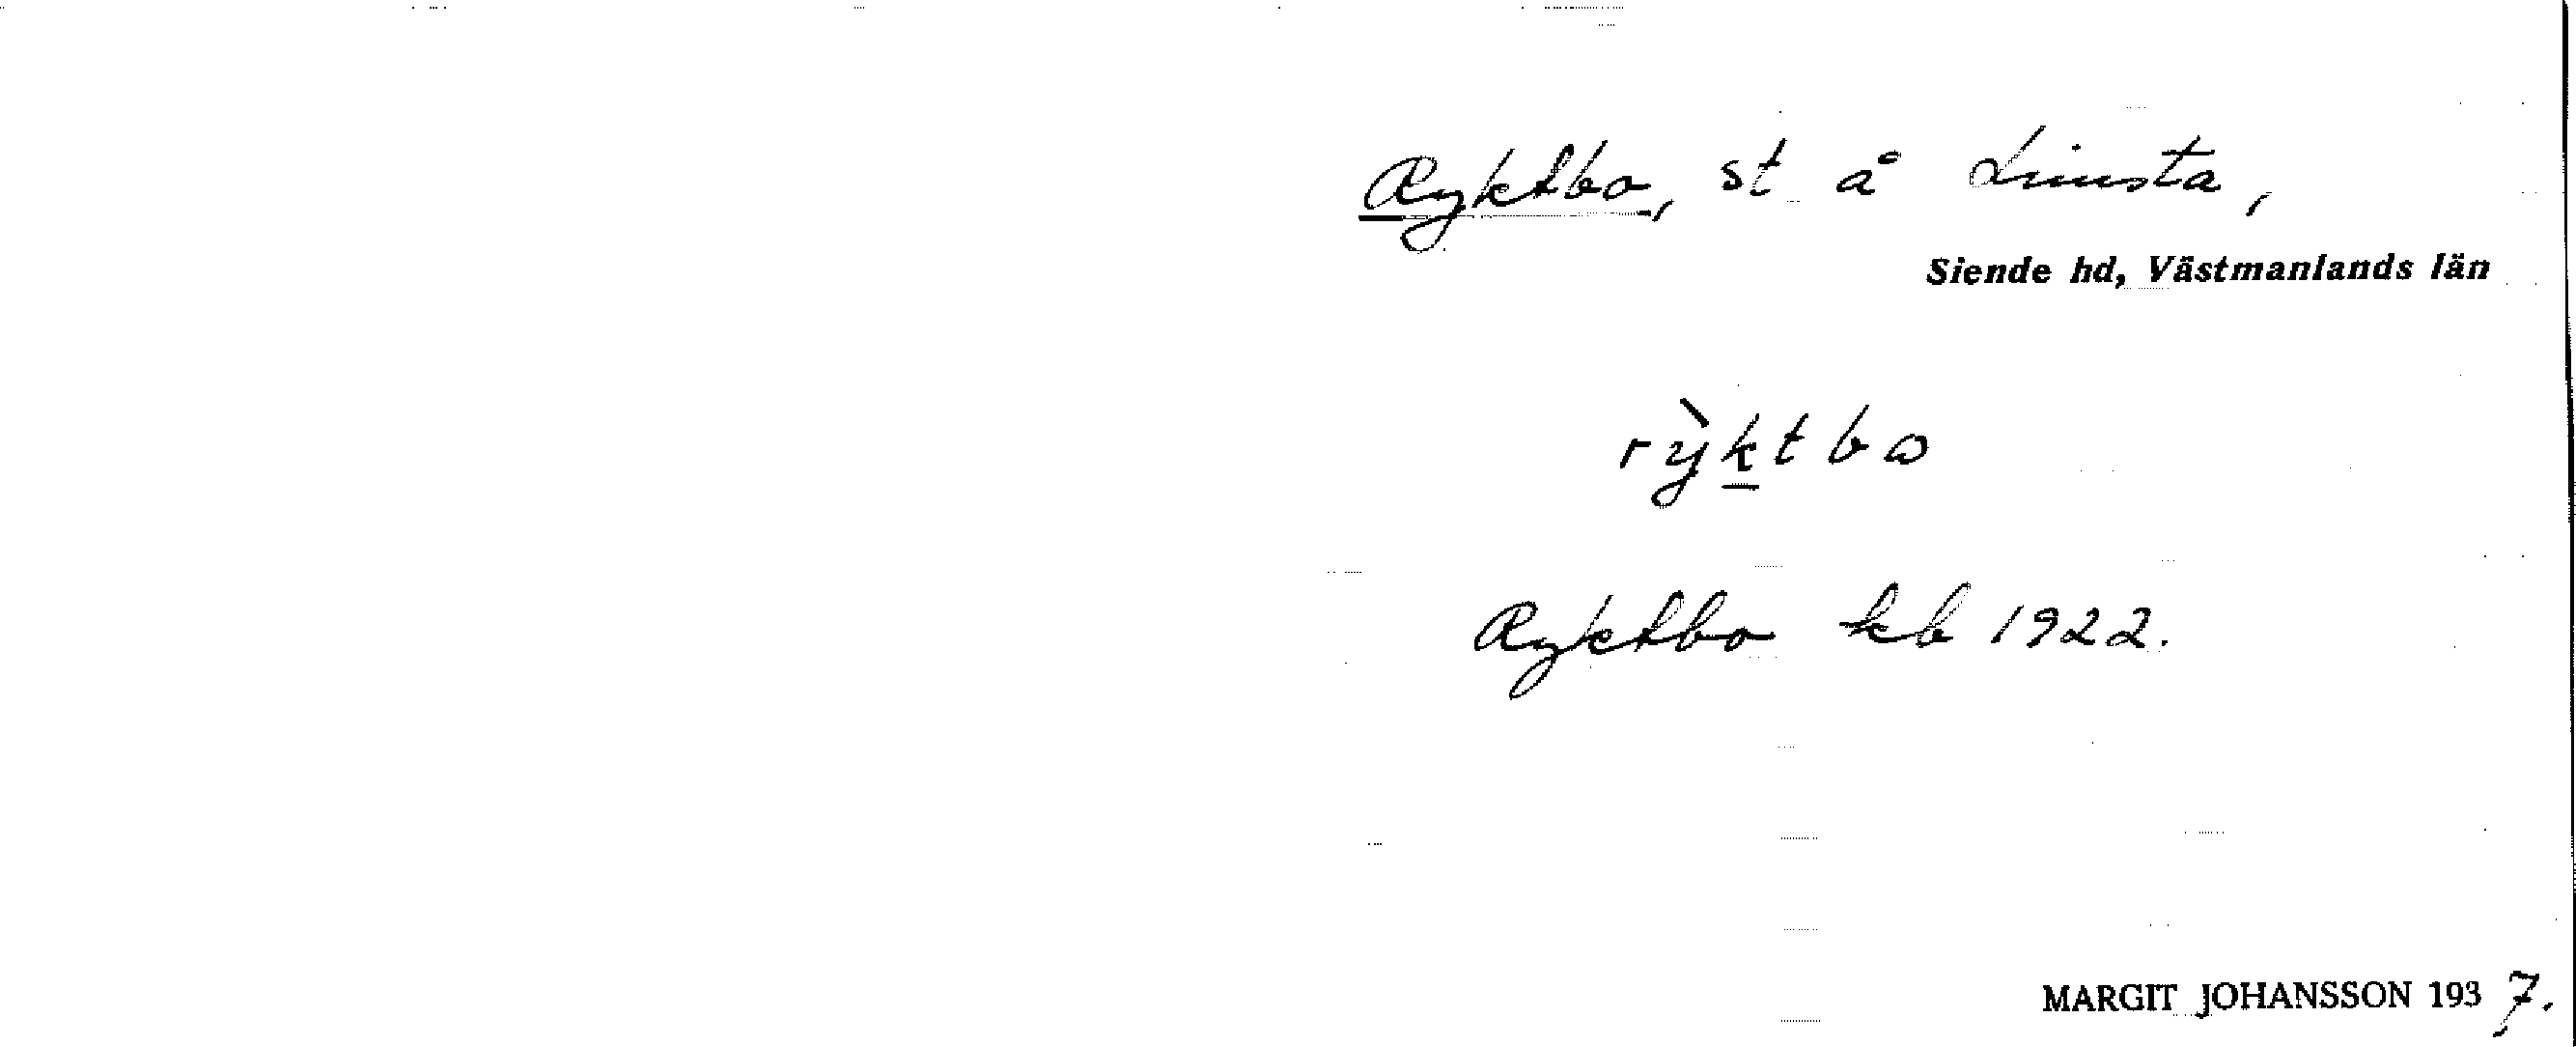 Ryktbo, st å Linsta,
Siende hd, Västmanlands län
rỳktbo
Ryktbo kb 1922.
MARGIT JOHANSSON 1937.